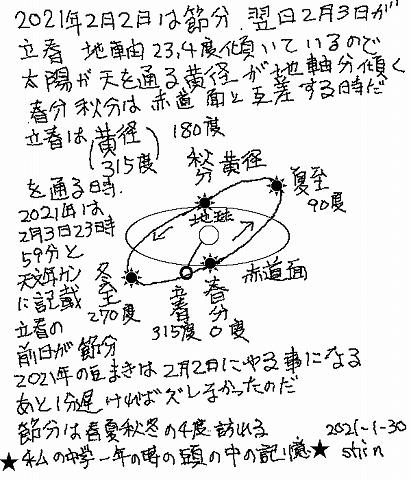 2021年2月2日は節分 翌日2月3日が
立春 地軸23.4度傾いているので
太陽が天を通る黄径が地軸分傾く
春分秋分は赤道面と交差する時だ
立春は(黄径
315度)
を通る時.
2021年は
2月3日23時
59分と
天文年カン
に記載
立春の
前日が節分
180度
秋分
黄径
夏至
90度
地球
赤道面
冬至
270度
立春
315度
春分
0度
2021年の豆まきは2月2日にやる事になる
あと1分遅ければズレなかったのだ
節分は春夏秋冬の4度訪れる
2021-1-30
★私の中学一年の時の頭の中の記憶★ shin